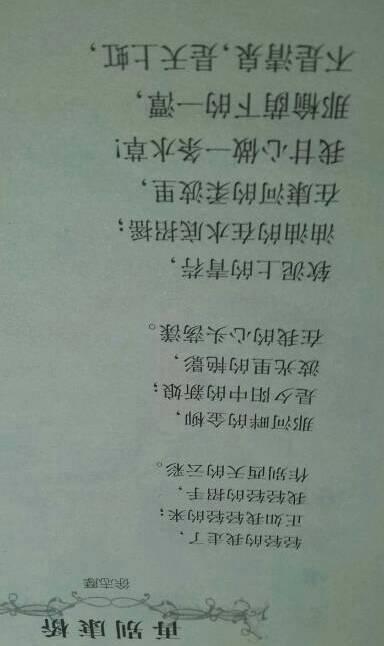 再别康桥
徐志摩
轻轻的我走了，
正如我轻轻的来；
我轻轻的招手，
作别西天的云彩。
那河畔的金柳，
是夕阳中的新娘；
波光里的艳影，
在我的心头荡漾。
软泥上的青荇，
油油的在水底招摇；
在康河的柔波里，
我甘心做一条水草！
那榆荫下的一潭，
不是清泉，是天上虹，